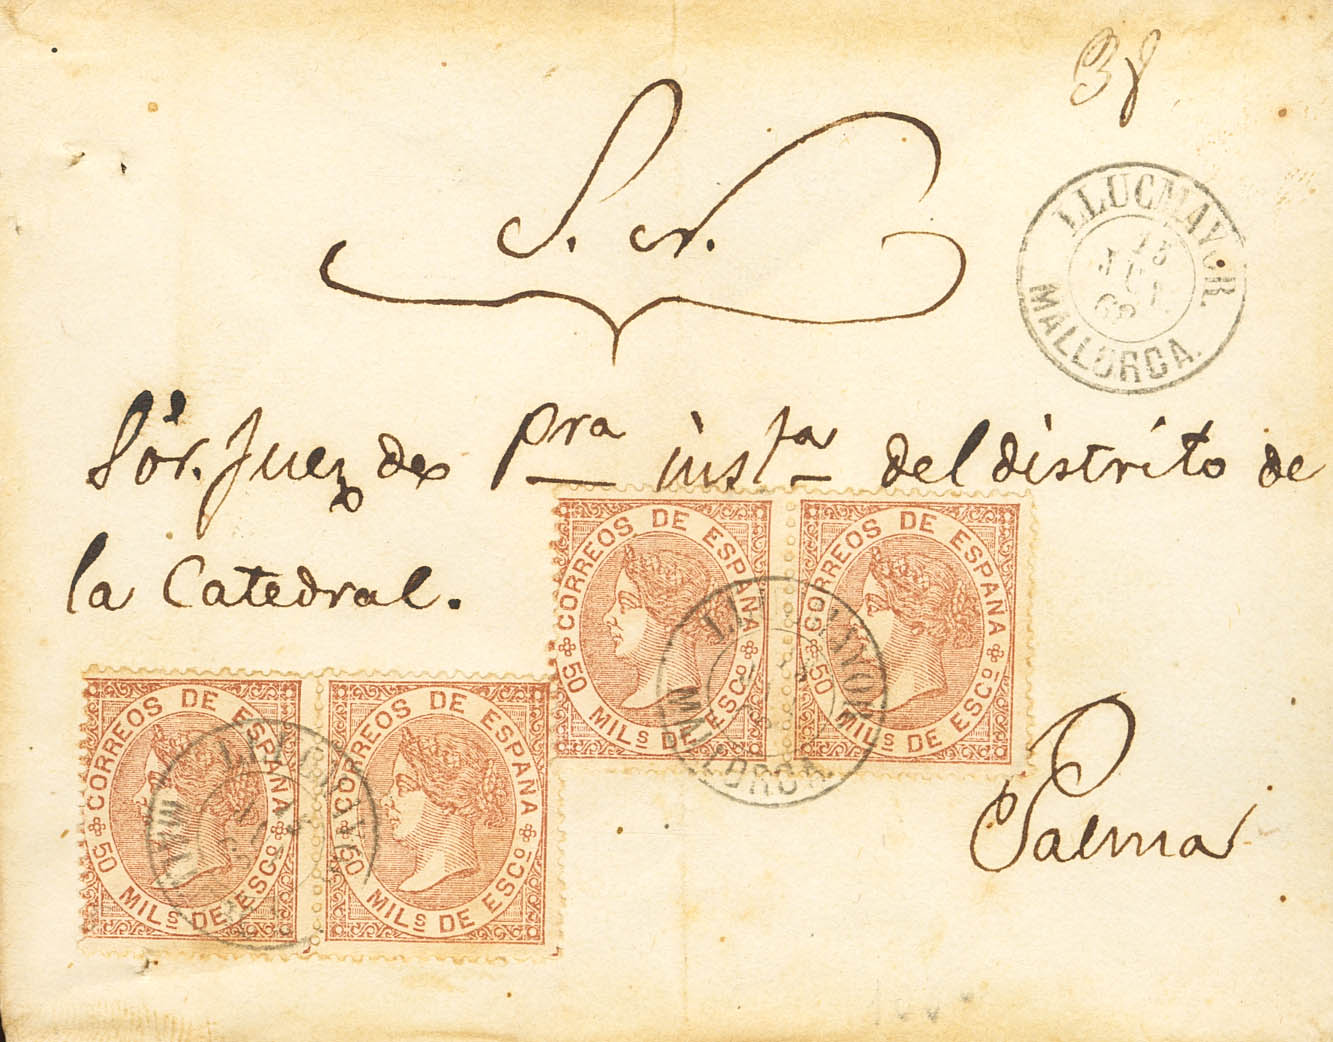 38
S. N.
LLUCMAYOR.
13
JUL
68
MALLORCA.
Sor. Juez de pra insta del distrito de
la Catedral.
CORREOS DE ESPAÑA
50 MILS DE ESCO
CORREOS DE ESPAÑA
50 MILS DE ESCO
MALLORCA.
CORREOS DE ESPAÑA
50 MILS DE ESCO
CORREOS DE ESPAÑA
50 MILS DE ESCO
Palma